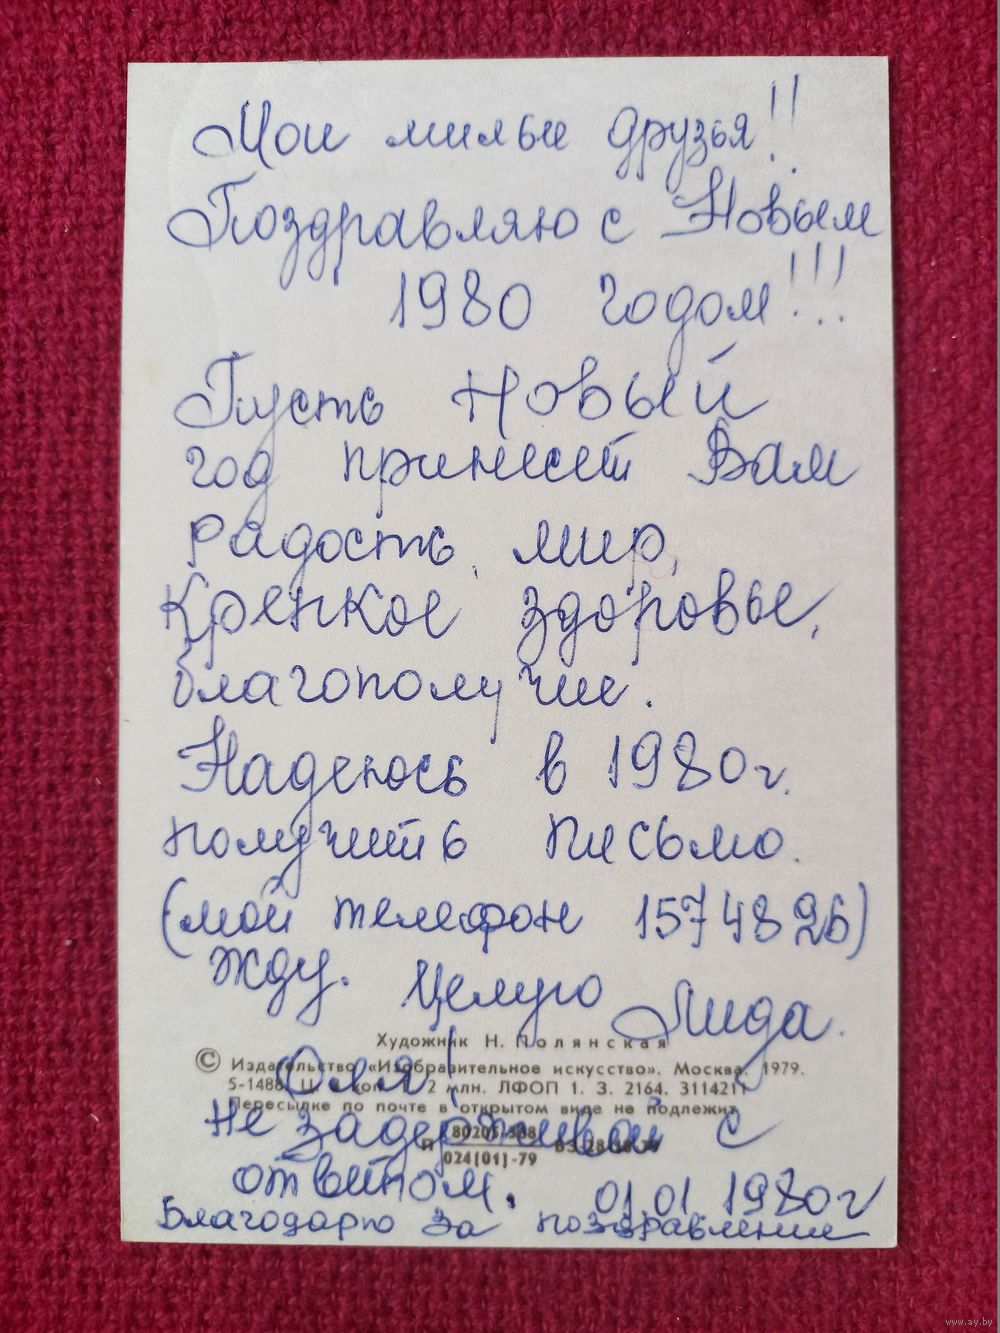 Мои милые друзья!!
Поздравляю с Новым
1980 годом!!!
Пусть Новый
год принесет Вам
радость, мир,
крепкое здоровье,
благополучие.
Надеюсь в 1980г.
получить письмо.
(мой телефон 1574826)
Жду. Целую Лида.
Художник Н. Полянская
© Издательство «Изобразительное искусство». Москва. 1979.
Оля!
5-1488. 2 млн. ЛФОП 1. З. 2164. 311421
Пересылке по почте в открытом виде не подлежит
Не задерживай с
П 80205-388
024(01)-79
ответом. 01.01 1980г
Благодарю за поздравление
www.ay.by